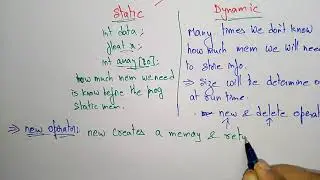 Static
int data;
float x;
int array[20];
how much mem we need
is know before the prog
static mem.
Dynamic
Many times we don't know
how much mem we will need
to store info.
⇒ size will be determine
at run time.
new & delete operat
⇒ new operator: new creates a memory & retu